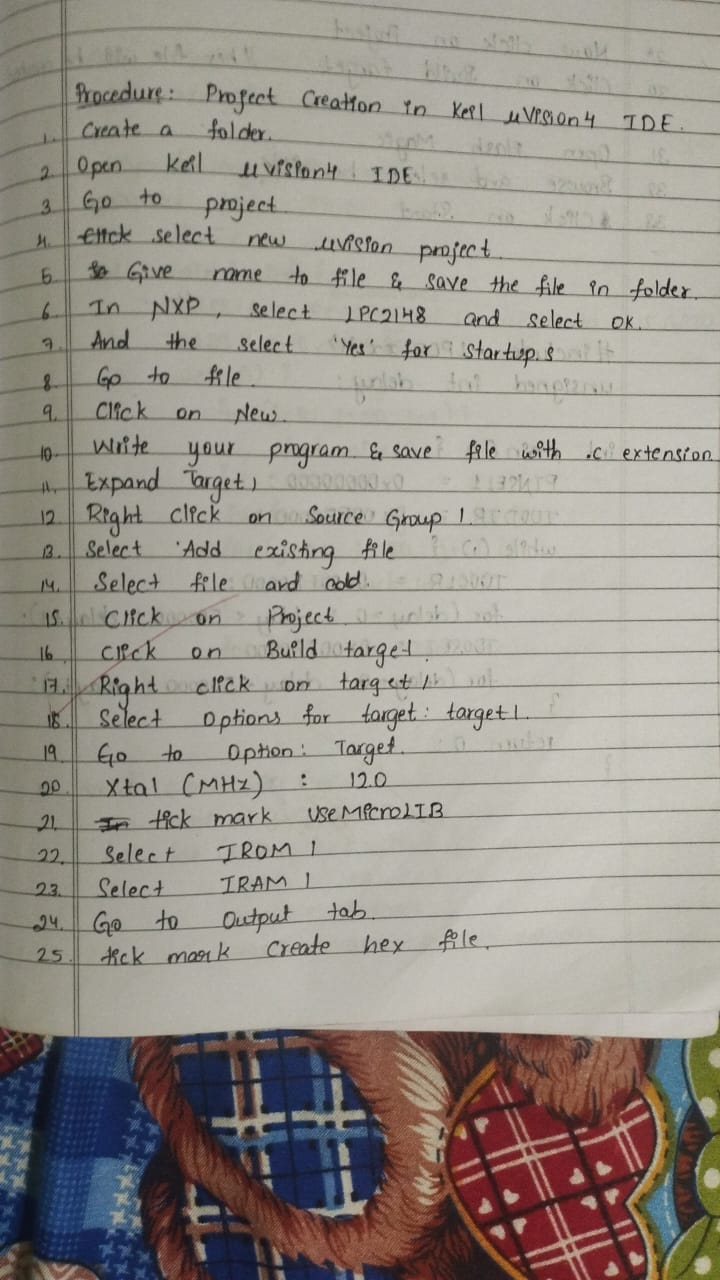 Procedure: Project Creation in Keil µVision4 IDE.
1. Create a folder.
2. Open Keil µvision4 IDE
3 Go to project
4. Click select new µvision project
5. Give name to file & save the file in folder.
6. In NXP, select LPC2148 and select OK.
7. And the select 'Yes' for startup.s
8. Go to file.
9. Click on New.
10. Write your program & save file with .c extension
11. Expand Target 1
12. Right click on Source Group 1.
13. Select 'Add existing file
14. Select file and add.
15. Click on Project
16. Click on Build target.
17. Right click on target 1.
18. Select Options for target: target1.
19. Go to Option: Target.
20. Xtal (MHz) : 12.0
21. tick mark Use MicroLIB
22. Select IROM 1
23. Select IRAM 1
24. Go to Output tab.
25. tick mark Create hex file.